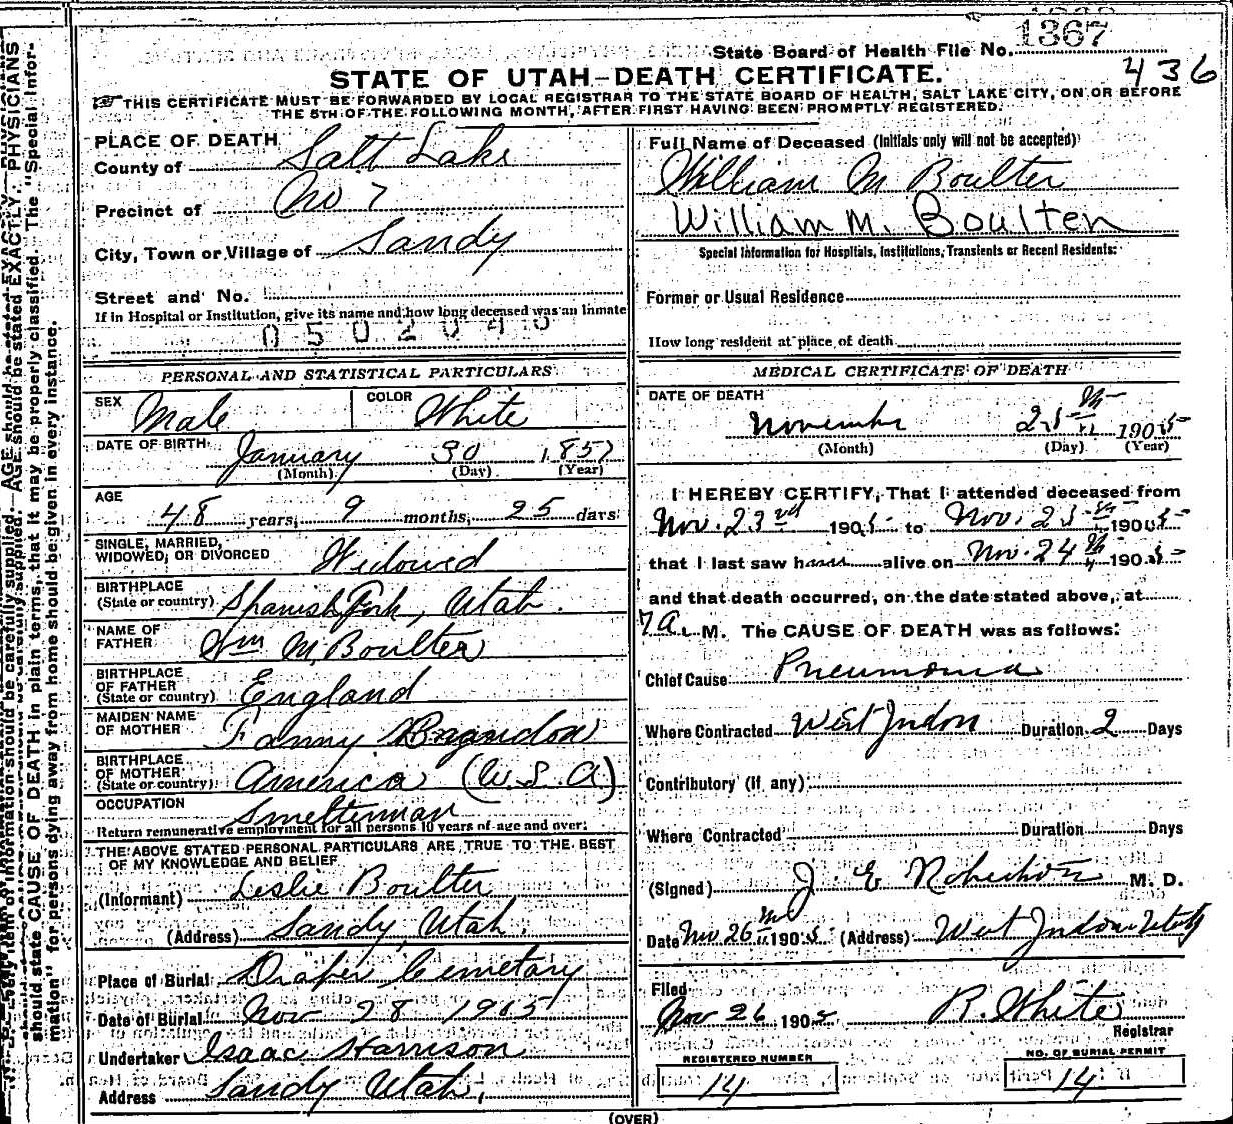 1367
State Board of Health File No.
STATE OF UTAH-DEATH CERTIFICATE.
436
THIS CERTIFICATE MUST BE FORWARDED BY LOCAL REGISTRAR TO THE STATE BOARD OF HEALTH, SALT LAKE CITY, ON OR BEFORE
THE 5TH OF THE FOLLOWING MONTH, AFTER FIRST HAVING BEEN PROMPTLY REGISTERED.
PLACE OF DEATH
County of Salt Lake
Precinct of No 7
City, Town or Village of Sandy
Street and No.
If in Hospital or Institution, give its name and how long deceased was an inmate
0502040
PERSONAL AND STATISTICAL PARTICULARS
SEX Male COLOR White
DATE OF BIRTH January 30 1857
(Month) (Day) (Year)
AGE
48 years, 9 months, 25 days
SINGLE, MARRIED,
WIDOWED, OR DIVORCED Widowed
BIRTHPLACE
(State or country) Spanish Fork, Utah.
NAME OF
FATHER Wm M. Boulter
BIRTHPLACE
OF FATHER
(State or country) England
MAIDEN NAME
OF MOTHER Fanny
BIRTHPLACE
OF MOTHER
(State or country) America (U.S.A)
OCCUPATION Smelterman
Return remunerative employment for all persons 10 years of age and over.
THE ABOVE STATED PERSONAL PARTICULARS ARE TRUE TO THE BEST
OF MY KNOWLEDGE AND BELIEF
(Informant) Leslie Boulter
(Address) Sandy, Utah.
Place of Burial Draper Cemetary
Date of Burial Nov 28 1905
Undertaker Isaac Harrison
Address Sandy Utah,
Full Name of Deceased (Initials only will not be accepted)
William M Boulter
William M. Boulten
Special Information for Hospitals, Institutions, Transients or Recent Residents:
Former or Usual Residence
How long resident at place of death
MEDICAL CERTIFICATE OF DEATH
DATE OF DEATH
November 25th 1905
(Month) (Day) (Year)
I HEREBY CERTIFY, That I attended deceased from
Nov. 23rd 1905 to Nov. 25th 1905
that I last saw h alive on Nov. 24th 1905
and that death occurred, on the date stated above, at
7 a. M. The CAUSE OF DEATH was as follows:
Chief Cause Pneumonia
Where Contracted West Jordon Duration 2 Days
Contributory (if any)
Where Contracted Duration Days
(Signed) J. E Robertson M. D.
Date Nov 26 1905 (Address) West Jordon Utah
Filed
Nov 26 1905 R. White
Registrar
REGISTERED NUMBER
14
NO. OF BURIAL PERMIT
14
(OVER)
should state CAUSE OF DEATH in plain terms, that it may be properly classified. The "Special Infor-
mation" for persons dying away from home should be given in every instance.